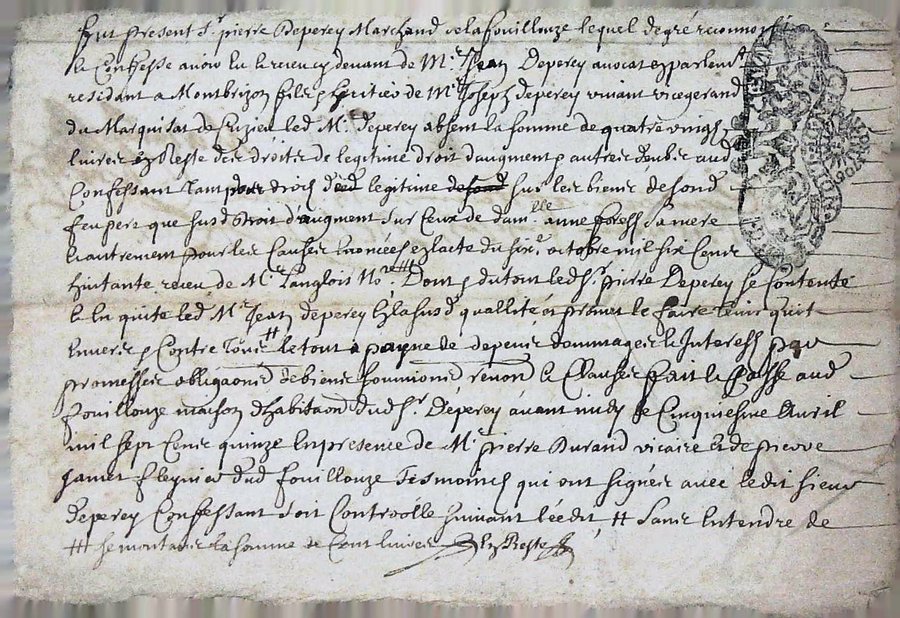 fut present Sr. pierre Deperey Marchand de la fouillouze lequel de gré reconnoist
et Confesse avoir Eu et receu cy devant de Mr. Jean Deperey avocat en parlemt
residant a Montbrizon fils et heritier de Mr. Joseph Deperey vivant vicegerand
du Marquisat de led Mr. Deperey absent la somme de quatre vingt
livres en Reste des droits de legitime droit daugment et autres deubs aud
Confessant tam pour droit de legitime sur les biens de fond
feu pere que susd droit d'augment sur Ceux de damlle. anne sa mere
Et autrement pour les Causes Enoncées en lacte du six octobre mil six Cens
huitante receu de Mr. Langlois Nore. Dont et du tout led Sr. pierre Deperey se Contente
et En quite led Mr. Jean Deperey En la susd quallité et promet le faire tenir quit
Envers et Contre tous # le tout a payne de depens dommages et Interests par
promesses obligaons de biens soumions renon et Clauses fait et passé aud
fouillouze maison d'habitaon dud Sr. Deperey avant midy le Cinquiesme Avril
mil sept Cens quinze En presence de Mr. pierre Durand vicaire et de pierre
Janet dud fouillouze Tesmoins qui ont signés avec ledit sieur
Deperey Confessant soit Controollé suivant lédit # sans Entendre de
se montans la somme de Cent livres En Reste